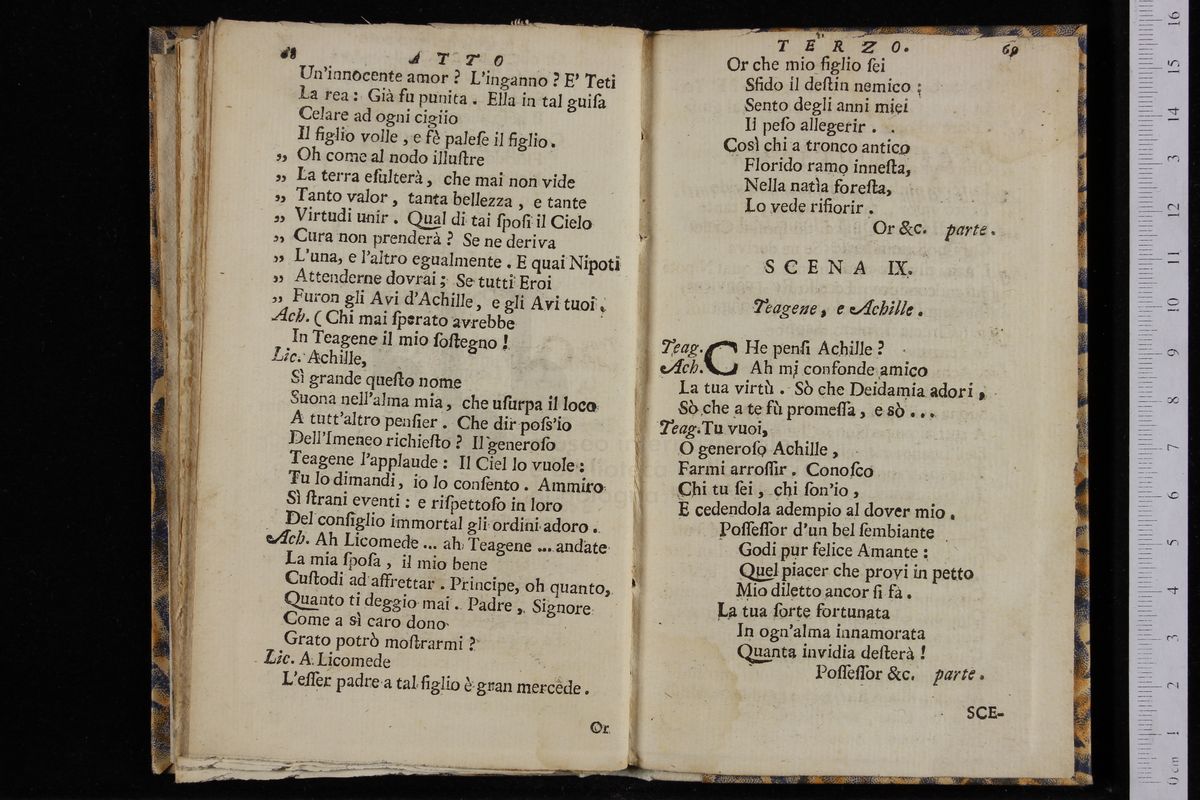 68 ATTO
Un'innocente amor ? L'inganno ? E' Teti
La rea : Già fu punita . Ella in tal guiſa
Celare ad ogni ciglio
Il figlio volle , e fè paleſe il figlio .
„ Oh come al nodo illuſtre
„ La terra eſulterà , che mai non vide
„ Tanto valor , tanta bellezza , e tante
„ Virtudi unir . Qual di tai ſpoſi il Cielo
„ Cura non prenderà ? Se ne deriva
„ L'una, e l'altro egualmente . E quai Nipoti
„ Attenderne dovrai ; Se tutti Eroi
„ Furon gli Avi d'Achille , e gli Avi tuoi .
Ach. ( Chi mai ſperato avrebbe
In Teagene il mio ſoſtegno !
Lic. Achille,
Sì grande queſto nome
Suona nell'alma mia , che uſurpa il loco
A tutt'altro penſier . Che dir poſs'io
Dell'Imeneo richieſto ? Il generoſo
Teagene l'applaude : Il Ciel lo vuole :
Tu lo dimandi , io lo conſento . Ammiro
Sì ſtrani eventi : e riſpettoſo in loro
Del conſiglio immortal gli ordini adoro .
Ach. Ah Licomede ... ah Teagene ... andate
La mia ſpoſa , il mio bene
Cuſtodi ad affrettar . Principe, oh quanto,
Quanto ti deggio mai . Padre , Signore
Come a sì caro dono
Grato potrò moſtrarmi ?
Lic. A Licomede
L'eſſer padre a tal figlio è gran mercede .
Or
TERZO. 69
Or che mio figlio ſei
Sfido il deſtin nemico ;
Sento degli anni miei
Il peſo allegerir .
Così chi a tronco antico
Florido ramo inneſta,
Nella natìa foreſta,
Lo vede rifiorir .
Or &c. parte .
SCENA IX.
Teagene , e Achille .
Teag. CHe penſi Achille ?
Ach. Ah mi confonde amico
La tua virtù . Sò che Deidamia adori ,
Sò che a te fù promeſſa , e sò . . .
Teag. Tu vuoi,
O generoſo Achille ,
Farmi arroſſir . Conoſco
Chi tu ſei , chi ſon'io ,
E cedendola adempio al dover mio .
Poſſeſſor d'un bel ſembiante
Godi pur felice Amante :
Quel piacer che provi in petto
Mio diletto ancor ſi fà .
La tua ſorte fortunata
In ogn'alma innamorata
Quanta invidia deſterà !
Poſſeſſor &c. parte .
SCE-
0 cm 1 2 3 4 5 6 7 8 9 10 11 12 13 14 15 16